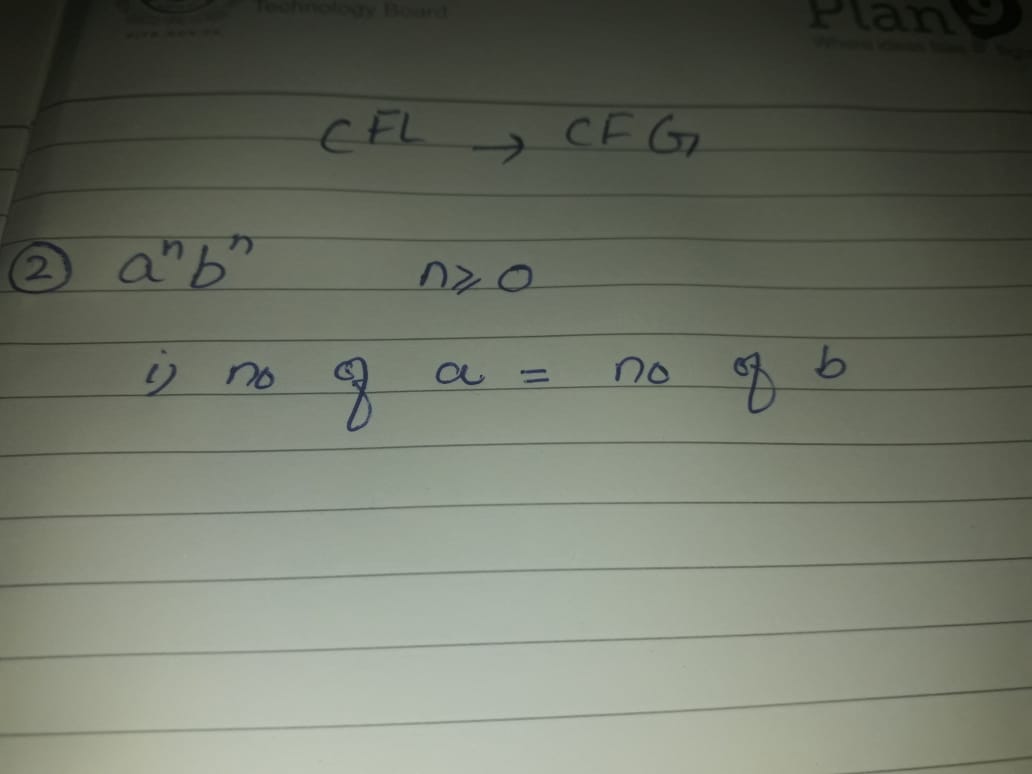 Technology Board
Plan9
CFL → CFG
② aⁿbⁿ n ≥ 0
i) no of a = no of b